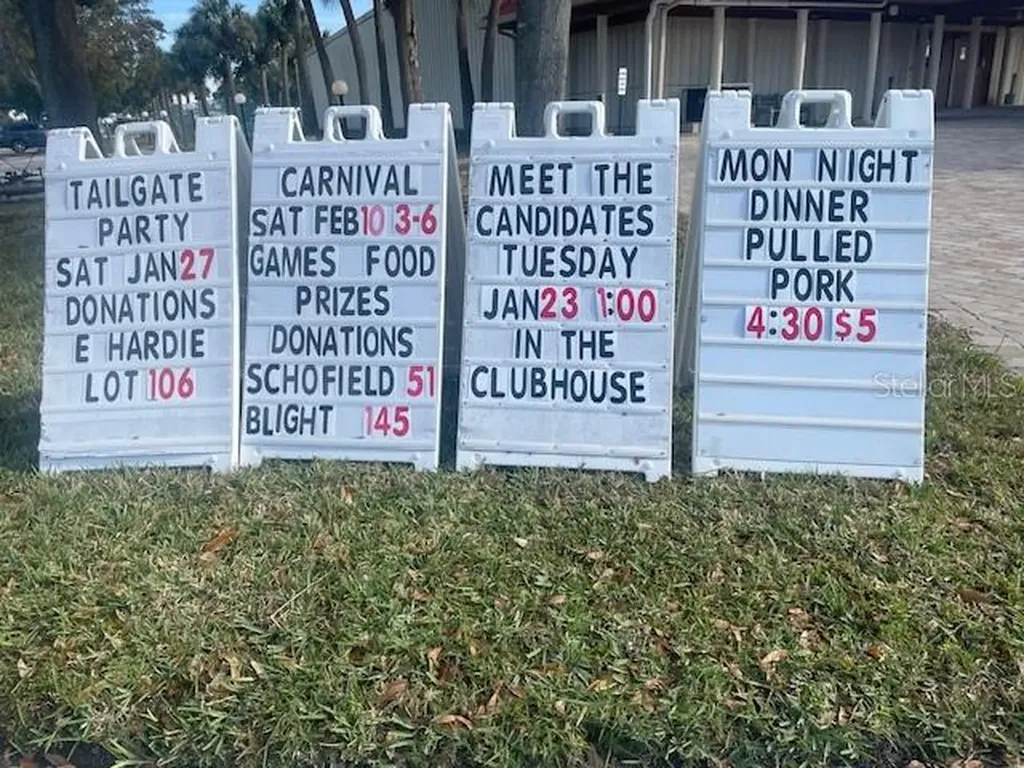 TAILGATE
PARTY
SAT JAN 27
DONATIONS
E HARDIE
LOT 106
CARNIVAL
SAT FEB 10 3-6
GAMES FOOD
PRIZES
DONATIONS
SCHOFIELD 51
BLIGHT 145
MEET THE
CANDIDATES
TUESDAY
JAN 23 1:00
IN THE
CLUBHOUSE
MON NIGHT
DINNER
PULLED
PORK
4:30 $5
Stellar MLS